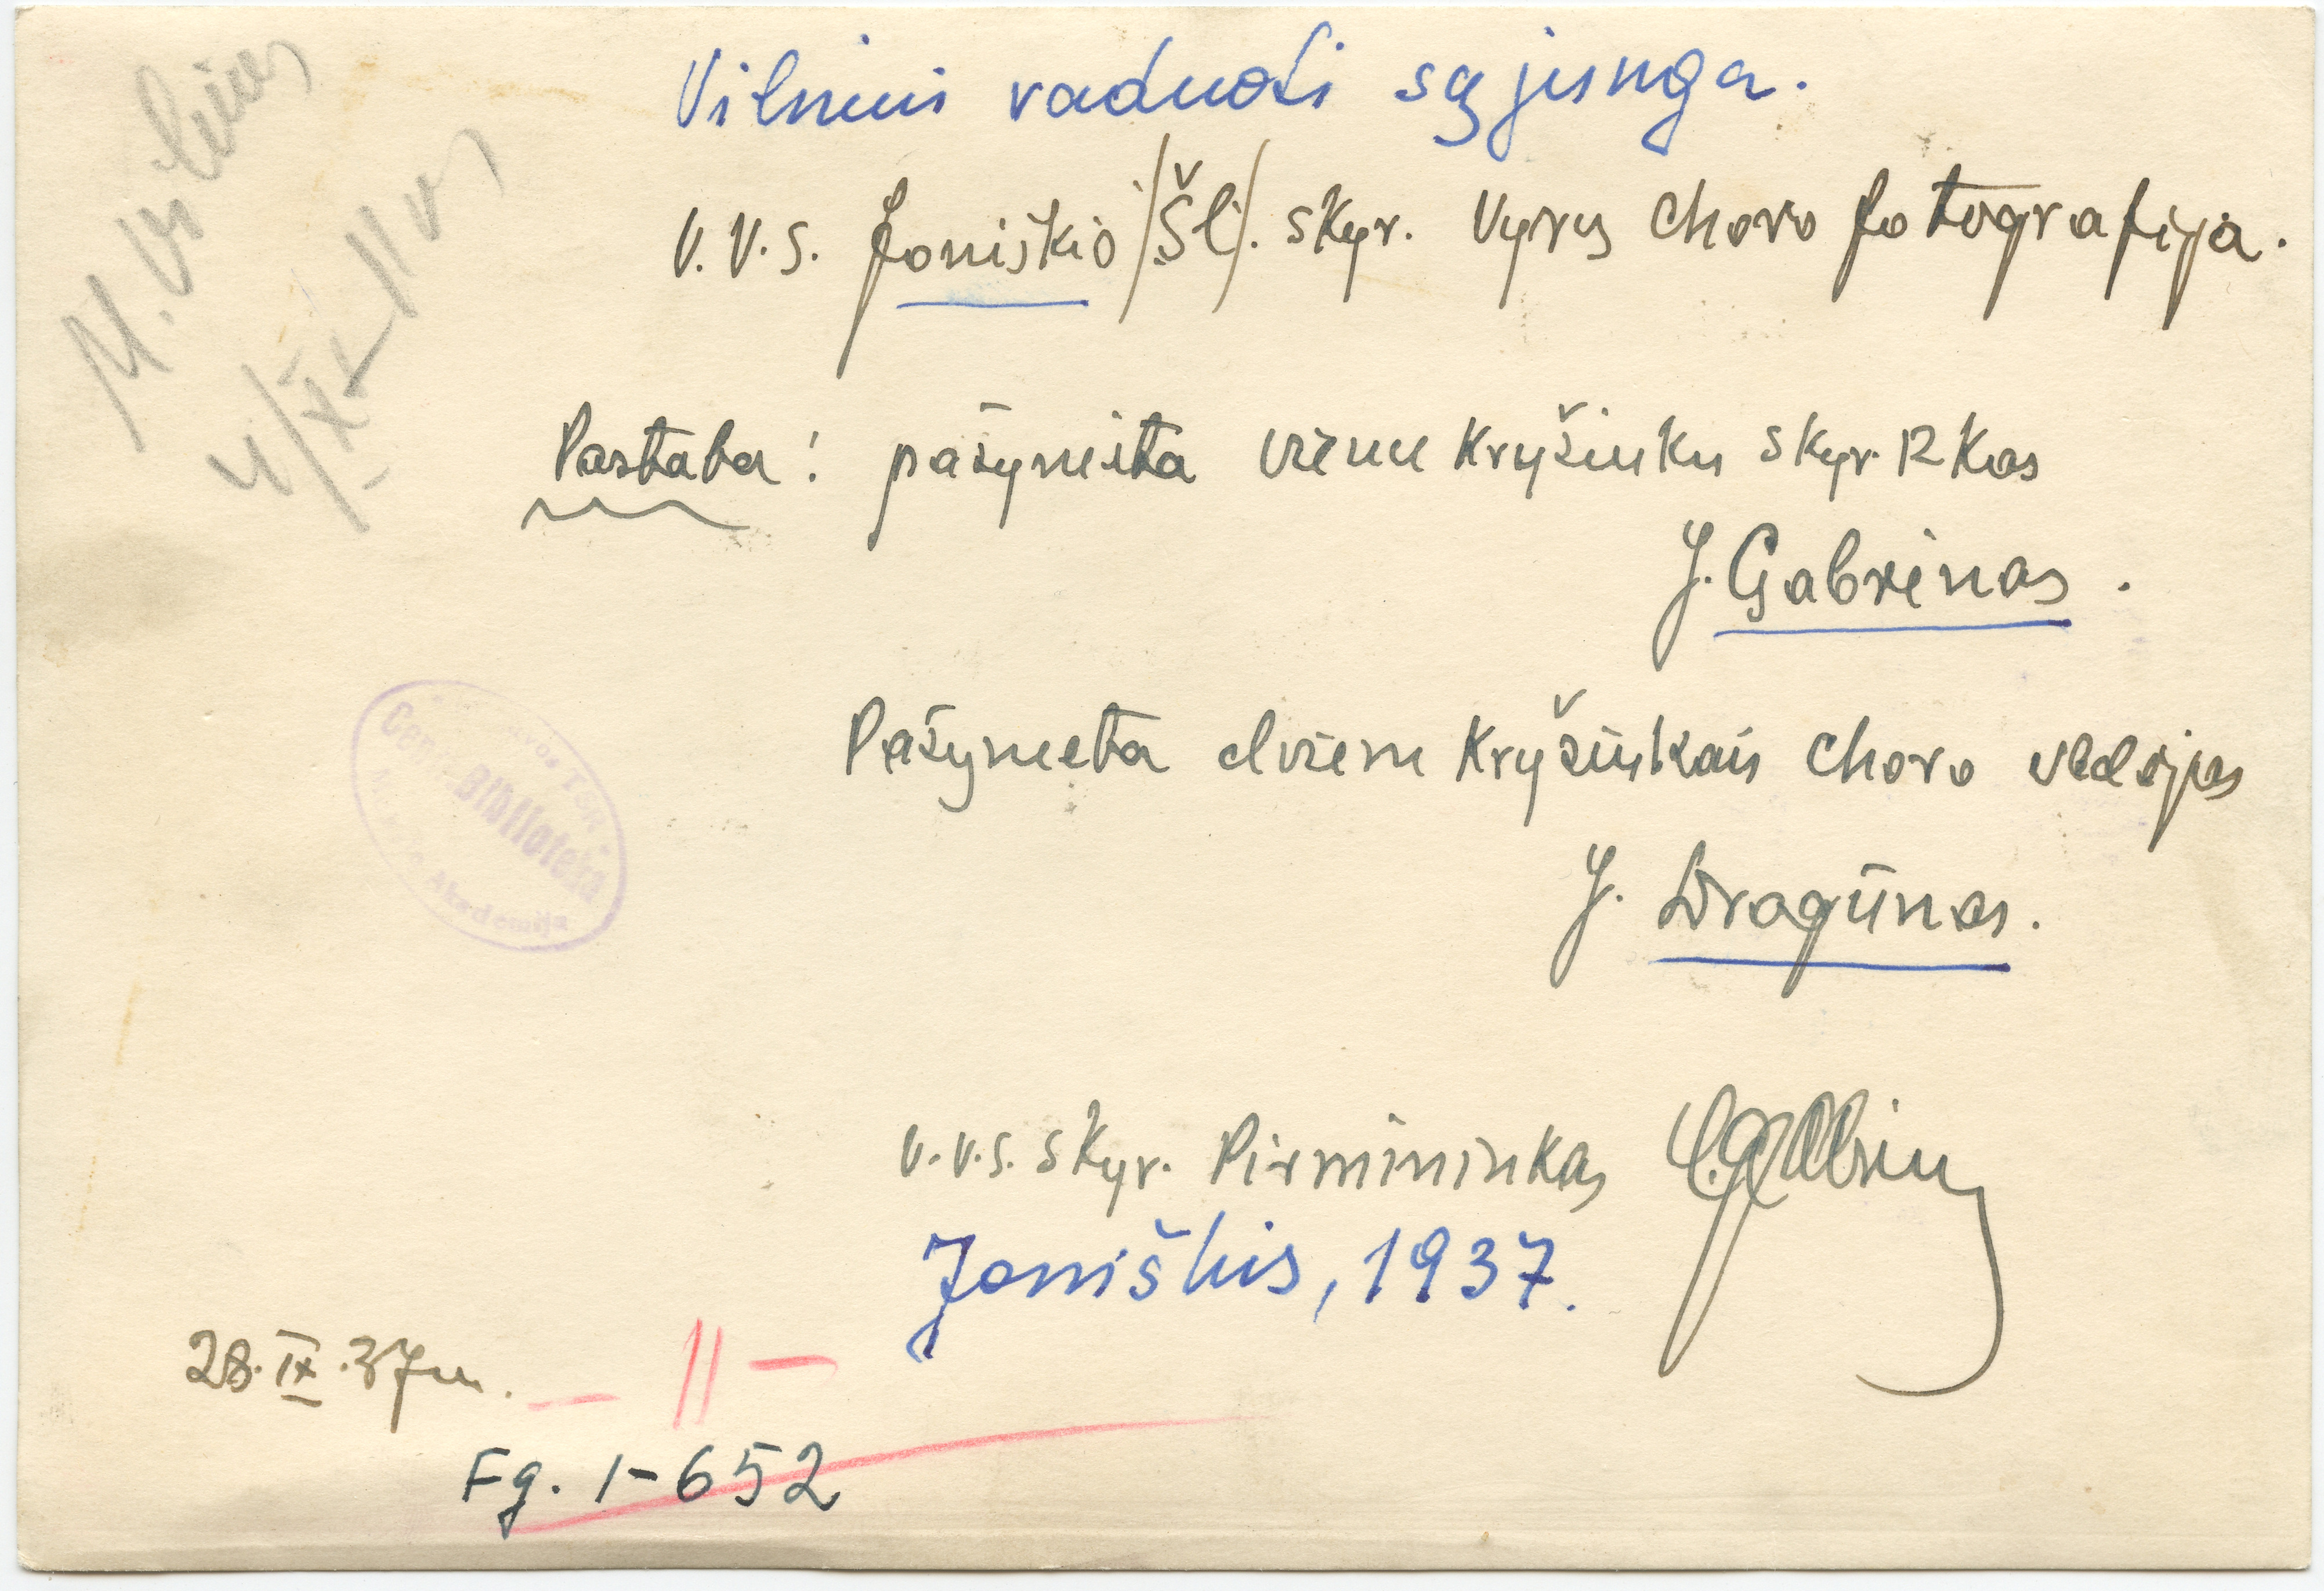 Vilniui vaduoti sąjunga.
V.V.S. Joniškio /Šl/. skyr. vyrų choro fotografija.
Pastaba: pažymėta vienu kryžiuku skyr. p-kas
J. Gabrėnas.
Pažymėta dviem kryžiukais choro vedėjas
J. Dragūnas.
V.V.S. skyr. Pirmininkas
Joniškis, 1937.
28.IX.37 m.
— II —
Fg. 1-652
M. Vilnius
Biblioteka
Akademija